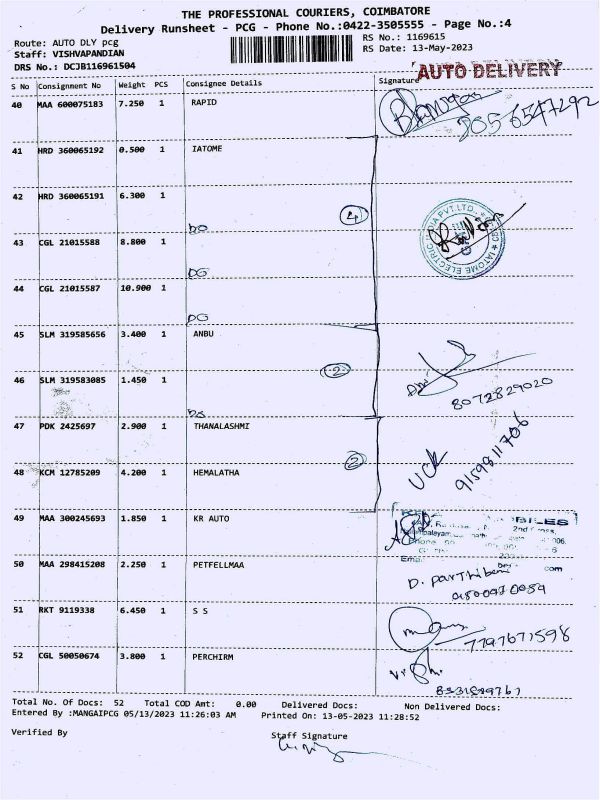 THE PROFESSIONAL COURIERS, COIMBATORE
Delivery Runsheet - PCG - Phone No.:0422-3505555 - Page No.:4
Route: AUTO DLY pcg
RS No.: 1169615
Staff: VISHVAPANDIAN
RS Date: 13-May-2023
DRS No.: DCJB116961504
AUTO DELIVERY
S No Consignment No Weight PCS Consignee Details Signature
40 MAA 600075183 7.250 1 RAPID
41 HRD 360065192 0.500 1 IATOME
42 HRD 360065191 6.300 1
4
DO
43 CGL 21015588 8.800 1
DG
44 CGL 21015587 10.900 1
DG
IATOME ELECTRIC INDIA PVT.LTD.
45 SLM 319585656 3.400 1 ANBU
2
46 SLM 319583085 1.450 1
8072829020
47 PDK 2425697 2.900 1 THANALASHMI
2
UCK
9159811706
48 KCM 12785209 4.200 1 HEMALATHA
49 MAA 300245693 1.850 1 KR AUTO
BILES
2nd Cross,
006.
Phone
Email
com
50 MAA 298415208 2.250 1 PETFELLMAA
D. Parthiban
51 RKT 9119338 6.450 1 S S
7797671598
52 CGL 50050674 3.800 1 PERCHIRM
Total No. Of Docs: 52 Total COD Amt: 0.00 Delivered Docs: Non Delivered Docs:
Entered By :MANGAIPCG 05/13/2023 11:26:03 AM Printed On: 13-05-2023 11:28:52
Verified By Staff Signature